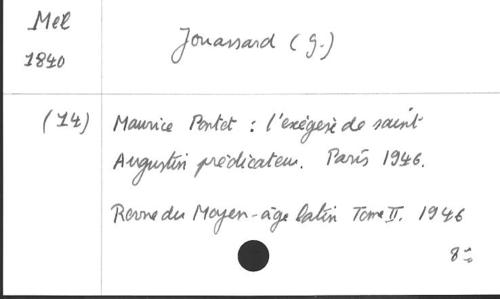 Mel
1840
Jouassard (g.)
(14) Maurice Pontet : l'exégèse de saint
Augustin prédicateur. Paris 1946.
Revue du Moyen-âge latin Tome II. 1946
8°